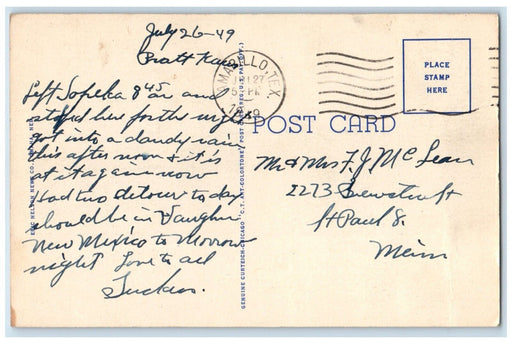 July 26-49
Pratt Kans
Left Topeka 8 45 am and
stayed here for the night
got into a dandy rain
this afternoon & it is
at it again now
Had two detour to day
should be in Vaughn
New Mexico to Morrow
night Love to all
AMARILLO, TEX.
27
5 PM
1949
PLACE
STAMP
HERE
POST CARD
Mr & Mrs F. J. McLean
2273
St Paul 8.
Minn
NELSON NEWS CO.
GENUINE CURTEICH-CHICAGO "C.T. ART-COLORTONE" POST CARD (REG. U.S. PAT. OFF.)